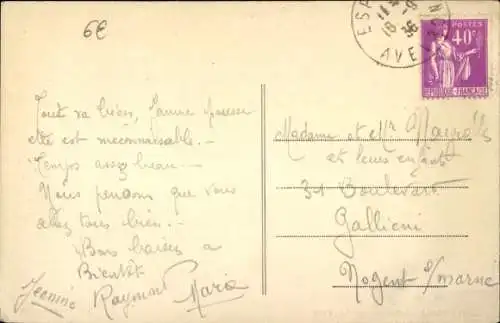 6€
ESP
18 -9
36
AVEYRON
POSTES
40c
REPUBLIQUE FRANÇAISE
Tout va bien,
elle est meconnaisable. -
Temps assez beau -
Nous pensons que vous
allez tous bien. -
Bons baisers a
Bientôt
Jeanine Raymond Maria
Madame et Mr
et leurs enfants
31 Boulevard
Gallieni
Nogent s/marne